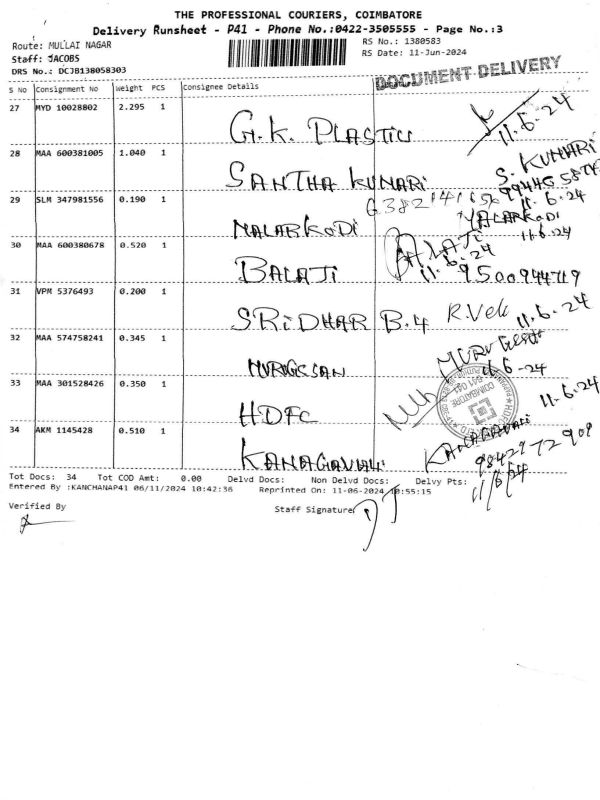 THE PROFESSIONAL COURIERS, COIMBATORE
Delivery Runsheet - P41 - Phone No.:0422-3505555 - Page No.:3
Route: MULLAI NAGAR
RS No.: 1380583
Staff: JACOBS
RS Date: 11-Jun-2024
DRS No.: DCJB138058303
DOCUMENT DELIVERY
S No Consignment No Weight PCS Consignee Details
27 MYD 10028802 2.295 1
G.K. PLASTIC 11.6.24
28 MAA 600381005 1.040 1
SANTHA KUMARI S. KUMARI
11.6.24
29 SLM 347981556 0.190 1
MALARKODI MALARKODI
11.6.24
30 MAA 600380678 0.520 1
BALAJI BALAJI
11.6.24 9500944719
31 VPM 5376493 0.200 1
SRiDHAR B.4 R.Vel 11.6.24
32 MAA 574758241 0.345 1
MURUGESAN 11.6.24
33 MAA 301528426 0.350 1
HDFC 11.6.24
34 AKM 1145428 0.510 1
KANAGAVALi
11/6/24
Tot Docs: 34 Tot COD Amt: 0.00 Delvd Docs: Non Delvd Docs: Delvy Pts:
Entered By :KANCHANAP41 06/11/2024 10:42:36 Reprinted On: 11-06-2024 10:55:15
Verified By
Staff Signature